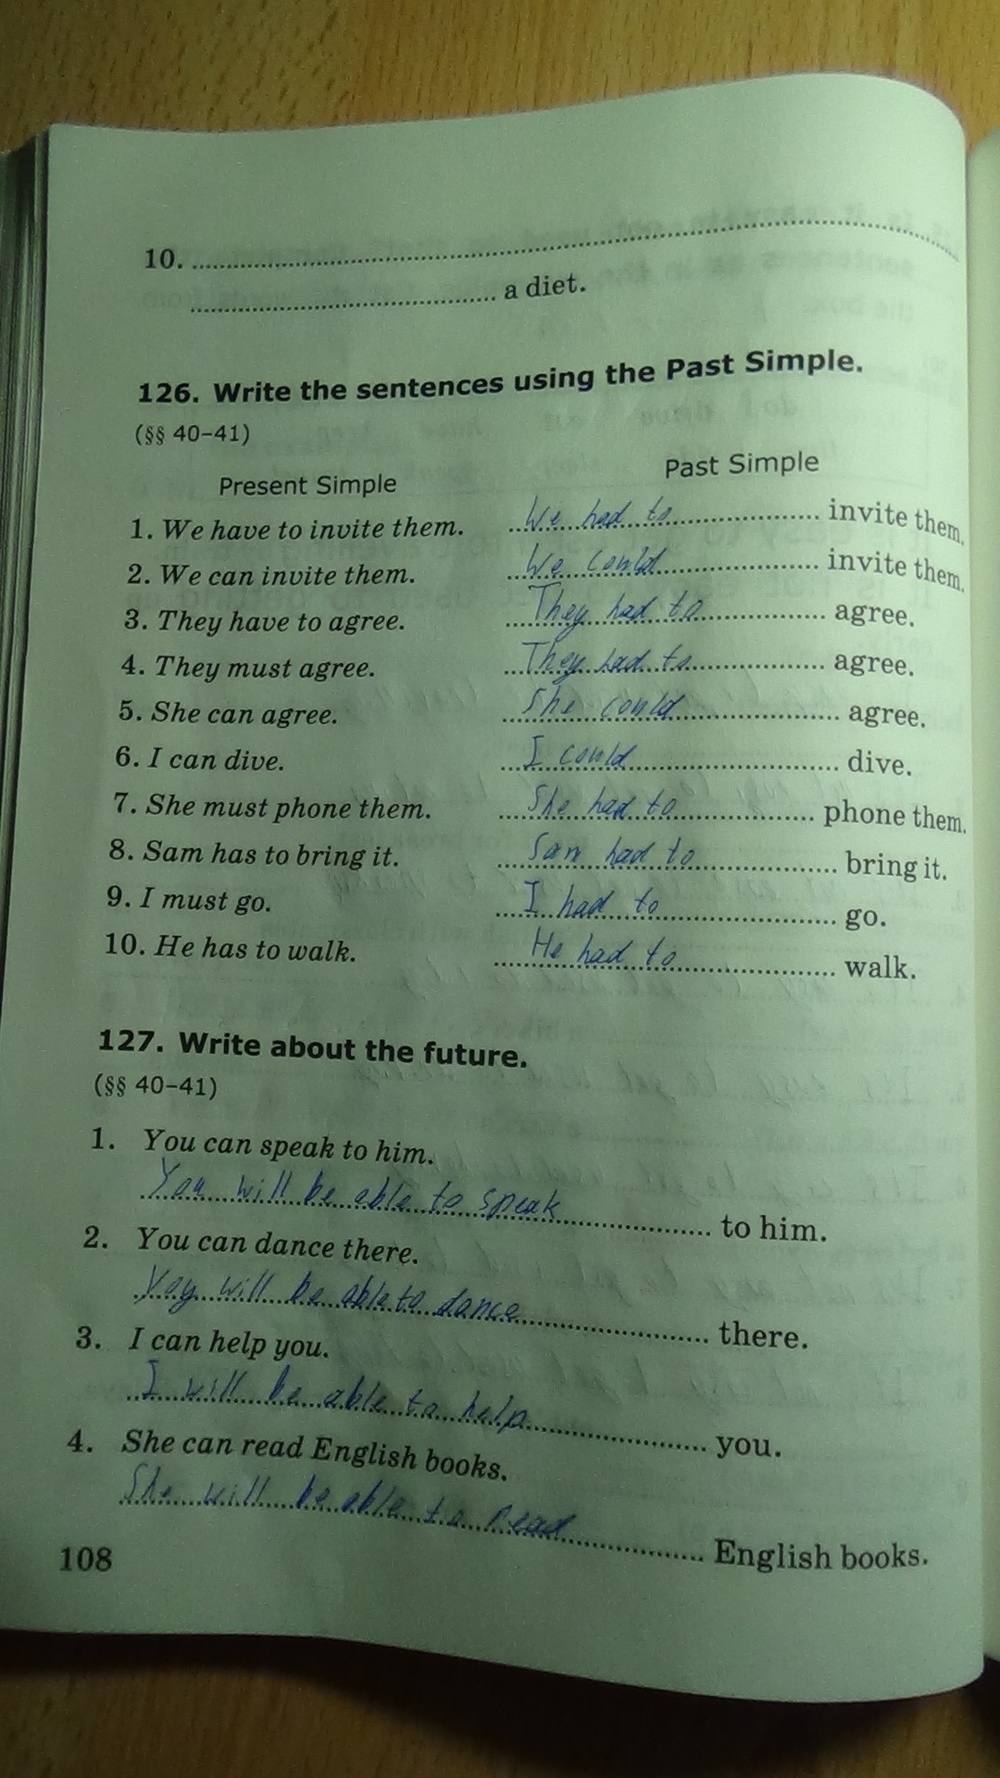 10. ........................................
........................................ a diet.
126. Write the sentences using the Past Simple.
(§§ 40–41)
Present Simple Past Simple
1. We have to invite them. We had to invite them.
2. We can invite them. We could invite them.
3. They have to agree. They had to agree.
4. They must agree. They had to agree.
5. She can agree. She could agree.
6. I can dive. I could dive.
7. She must phone them. She had to phone them.
8. Sam has to bring it. Sam had to bring it.
9. I must go. I had to go.
10. He has to walk. He had to walk.
127. Write about the future.
(§§ 40–41)
1. You can speak to him.
You will be able to speak to him.
2. You can dance there.
Yoy will be able to dance there.
3. I can help you.
I will be able to help you.
4. She can read English books.
She will be able to read English books.
108